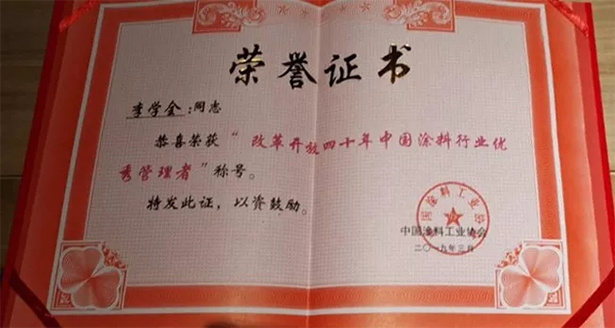 荣誉证书
李学金:同志
恭喜荣获“改革开放四十年中国涂料行业优
秀管理者”称号。
特发此证，以资鼓励。
中国涂料工业协会
中国涂料工业协会
二〇一九年三月